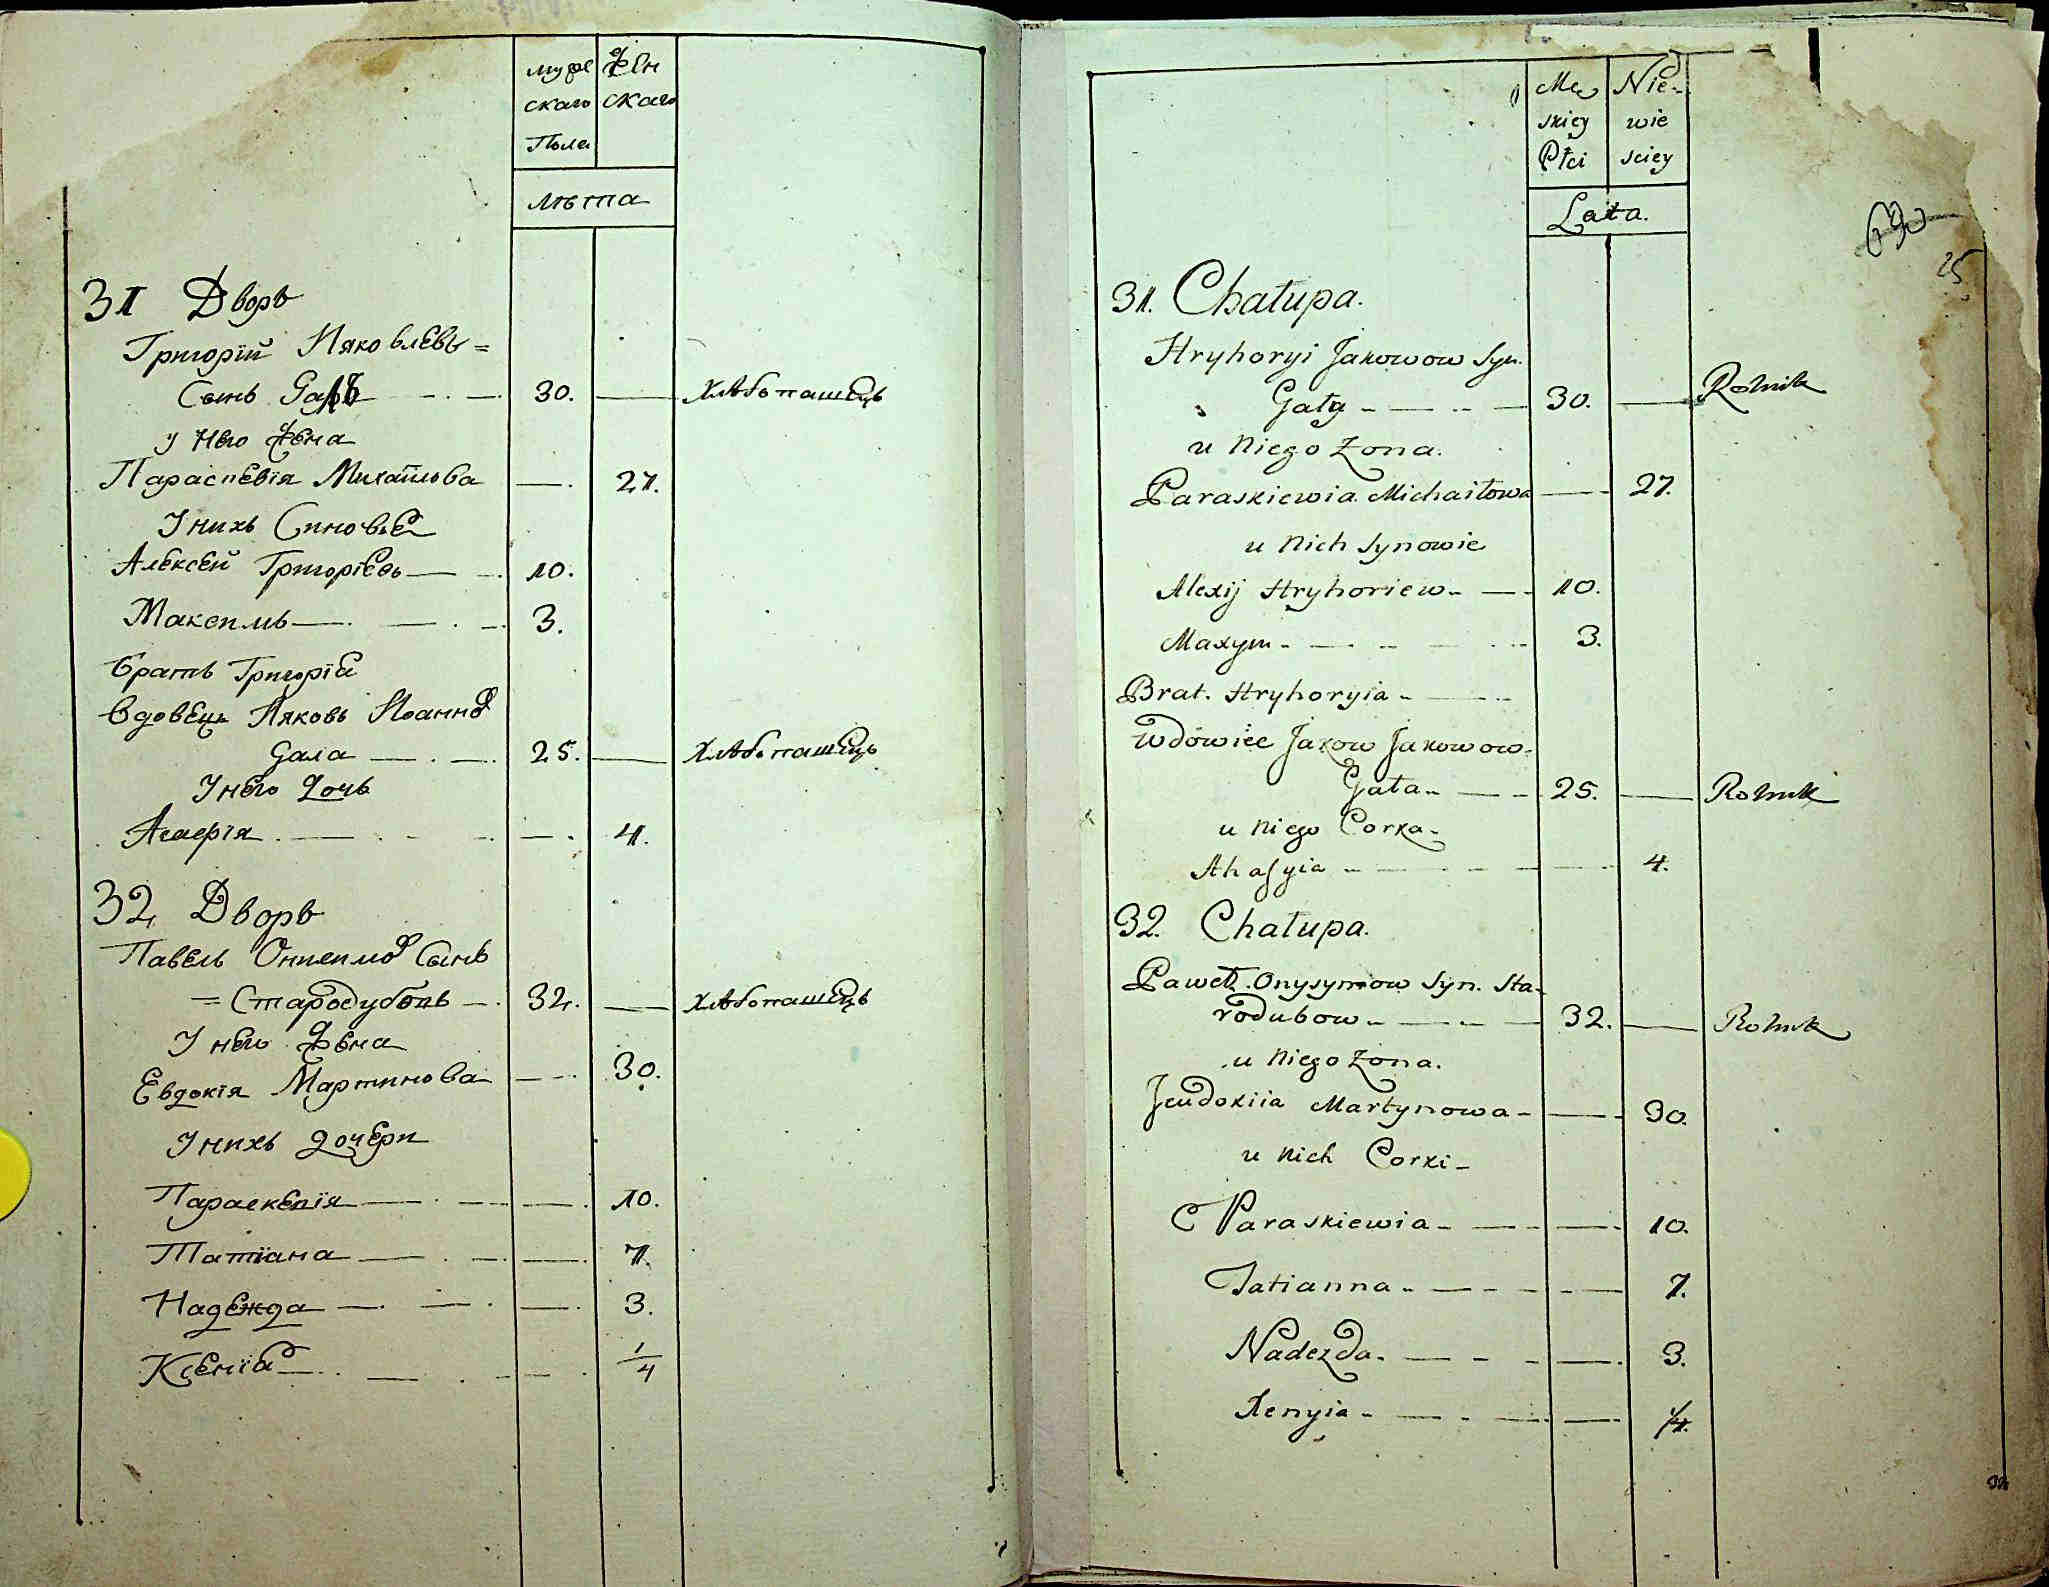 муже Жен
скаго скаго
Пола
лѣта
31 Дворъ
Григорій Ияковлевъ =
Сынъ Галъ — · — 30. — Хлѣбопашецъ
у него Жена
Параскевїя Михайлова — · 27.
У нихъ Синовье
Алексей Григорїевъ — · 10.
Максимъ — · — · — 3.
братъ Григорїя
вдовецъ Ияковъ Иоаннов
Гала — · — · 25. — Хлѣбопашецъ
У него Дочь
Агафїя · — · · — · 4.
32 Дворъ
Павелъ Онисимов Сынъ
= Стародубовъ — · 32. — Хлѣбопашецъ
У него Жена
Евдокїя Мартинова — · 30.
У нихъ Дочери
Параскевїя — · — · — · 10.
Татїана — · — · — · 7.
Надежда — · — · — · 3.
Ксенїа — · · — · · — · 1/4
Mę Nie-
skiey wie
Płci sciey
Lata.
25
31. Chałupa.
Hryhoryi Jakowow Syn.
Gała - — · · — 30. — Rolnik
u niego Zona.
Paraskiewia Michaiłowa — 27.
u nich Synowie
Alexij Hryhoriew - — - 10.
Maxym - — - — · · 3.
Brat. Hryhoryia - —
Wdowiec Jakow Jakowow -
Gała - — - 25. — Rolnik
u niego Corka -
Ahafyia - — - — — 4.
32. Chałupa.
Paweł. Onysymow Syn. Sta-
rodubow - — - — 32. — Rolnik
u niego Zona.
Jeudokiia Martynowa - — 30.
u nich Corki -
Paraskiewia - — - — 10.
Tatianna - — - — 7.
Nadezda. — - - — 3.
Xenyia - — - — — 1/4.